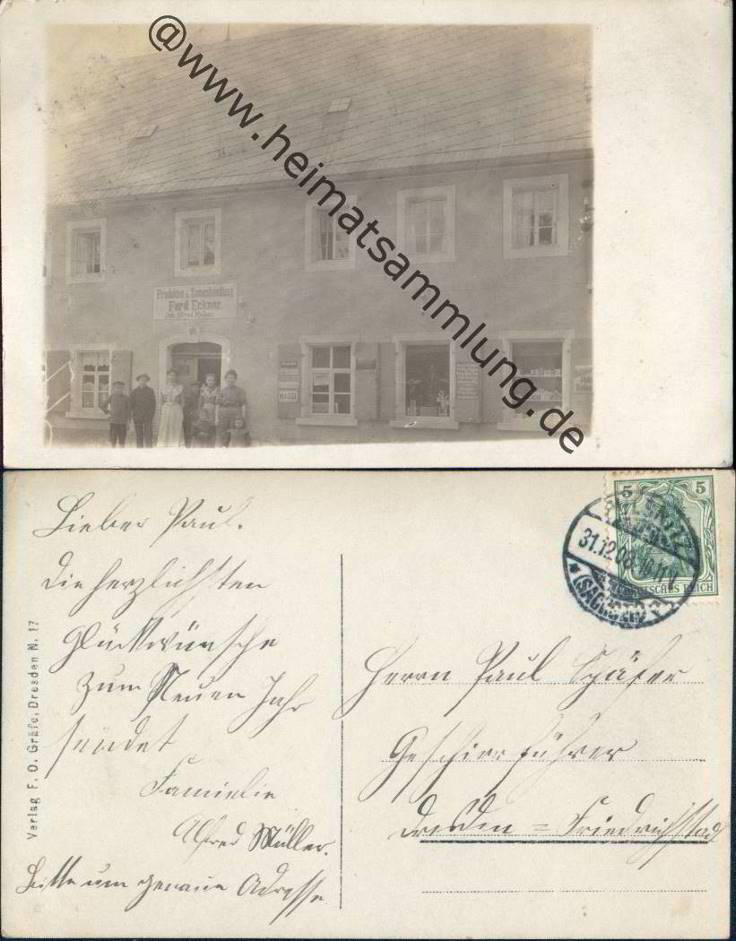 @www.heimatsammlung.de
Produkten u. Samenhandlung
Ferd. Eckner
MAGGI
5 5
31.12.08
(SACHSEN)
DEUTSCHES REICH
Verlag F. O. Gräfe, Dresden N. 17
Lieber Paul.
Die herzlichsten
Glückwünsche
zum Neuen Jahr
sendet
Familie
Alfred Müller.
Bitte um genaue Adresse
Herrn Paul Schäfer
Geschirrführer
Dresden = Friedrichstadt